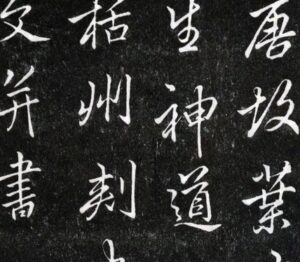 唐故葉
生神道
栝州刾
文并書